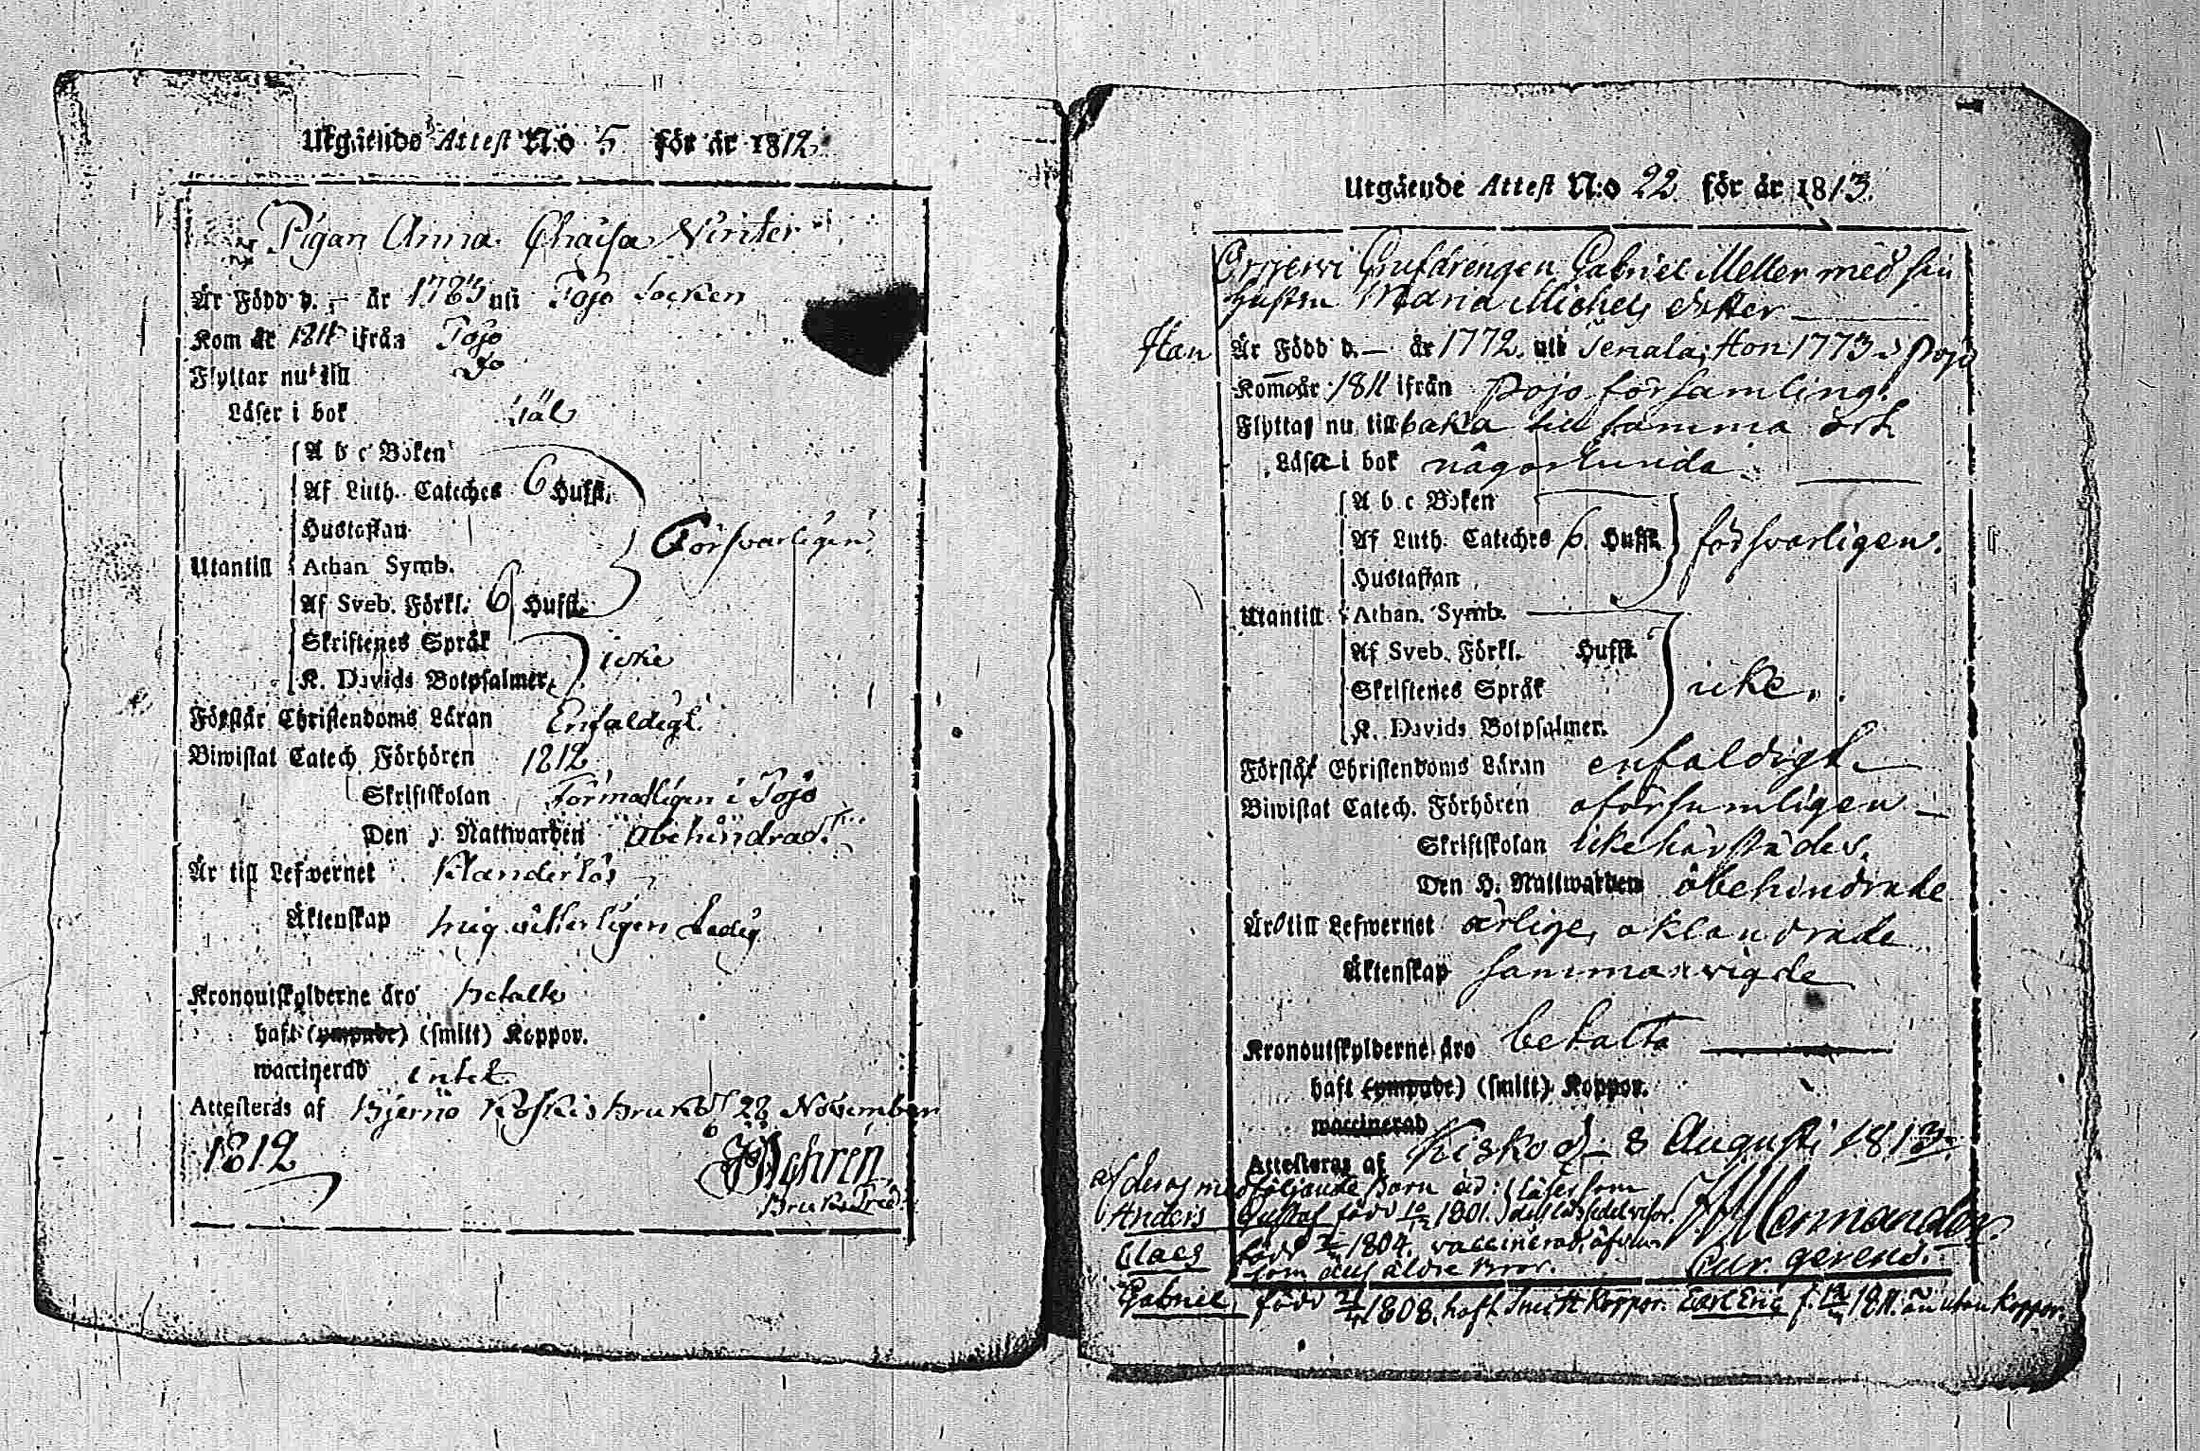 Utgående Attest N:o 5 för år 1812.
Pigan Anna Chaisa Winter
Är Född d. - år 1783 uti Pojo Socken
Kom år 1811 ifrån Pojo
Flyttar nu till do
Läser i bok väl
A b c Boken
Af Luth. Cateches 6 Hufst.
Hustaflan
Försvarligen
Utantill
Athan Symb.
Af Sveb. Förkl. 6 Hufst.
Skriftenes Språk
icke
K. Davids Botpsalmer.
Förstår Christendoms Läran Enfaldigt.
Biwistat Catech Förhören 1812
Skriftskolan Förmodligen i Pojo
Den Nattwarden obehindrad.
Är till Lefwernet Klanderlös
Äktenskap mig veterligen Ledig
Kronoutskylderne äro betalte
haft (ympade) (smitt) Koppor.
waccinerad intet.
Attesteras af Bjerno Koskis Bruk d. 28 November
1812
Bruks Pred.
Utgående Attest N:o 22 för år 1813.
Gabriel Meller med sin
hustru Maria Michels dotter
Han Är Född d. - år 1772. uti Tenala, Hon 1773 i Pojo
Kom år 1811 ifrån Pojo församling.
Flyttar nu tillbaka till samma ort
Läsa i bok någorlunda
A b c Boken
Af Luth. Cateches 6. Hufst.
försvarligen.
Hustaflan
Utantill
Athan. Symb.
Af Sveb. Förkl. Hufst.
Skriftenes Språk
icke.
K. Davids Botpsalmer.
Förstår Christendoms Läran enfaldigt
Biwistat Catech. Förhören oförsumligen
Skriftskolan icke härstädes.
Den H. Nattwarden obehindrade
Äro till Lefwernet ärlige, oklandrade
Äktenskap sammanvigde
Kronoutskylderne äro betalta
haft (ympade) (smitt) Koppor.
waccinerad
Attesteras af Kisko d. 8 Augusti 1813.
af deras medföljande barn är: läser som
Anders Gustaf född 10/2 1801.
Claes född 1804. vaccinerad, äfven
som dess äldre Bror.
Cur. gerens.
Gabriel född 1808. haft smitt koppor. Carl Eric f. 1811. än utan koppor.